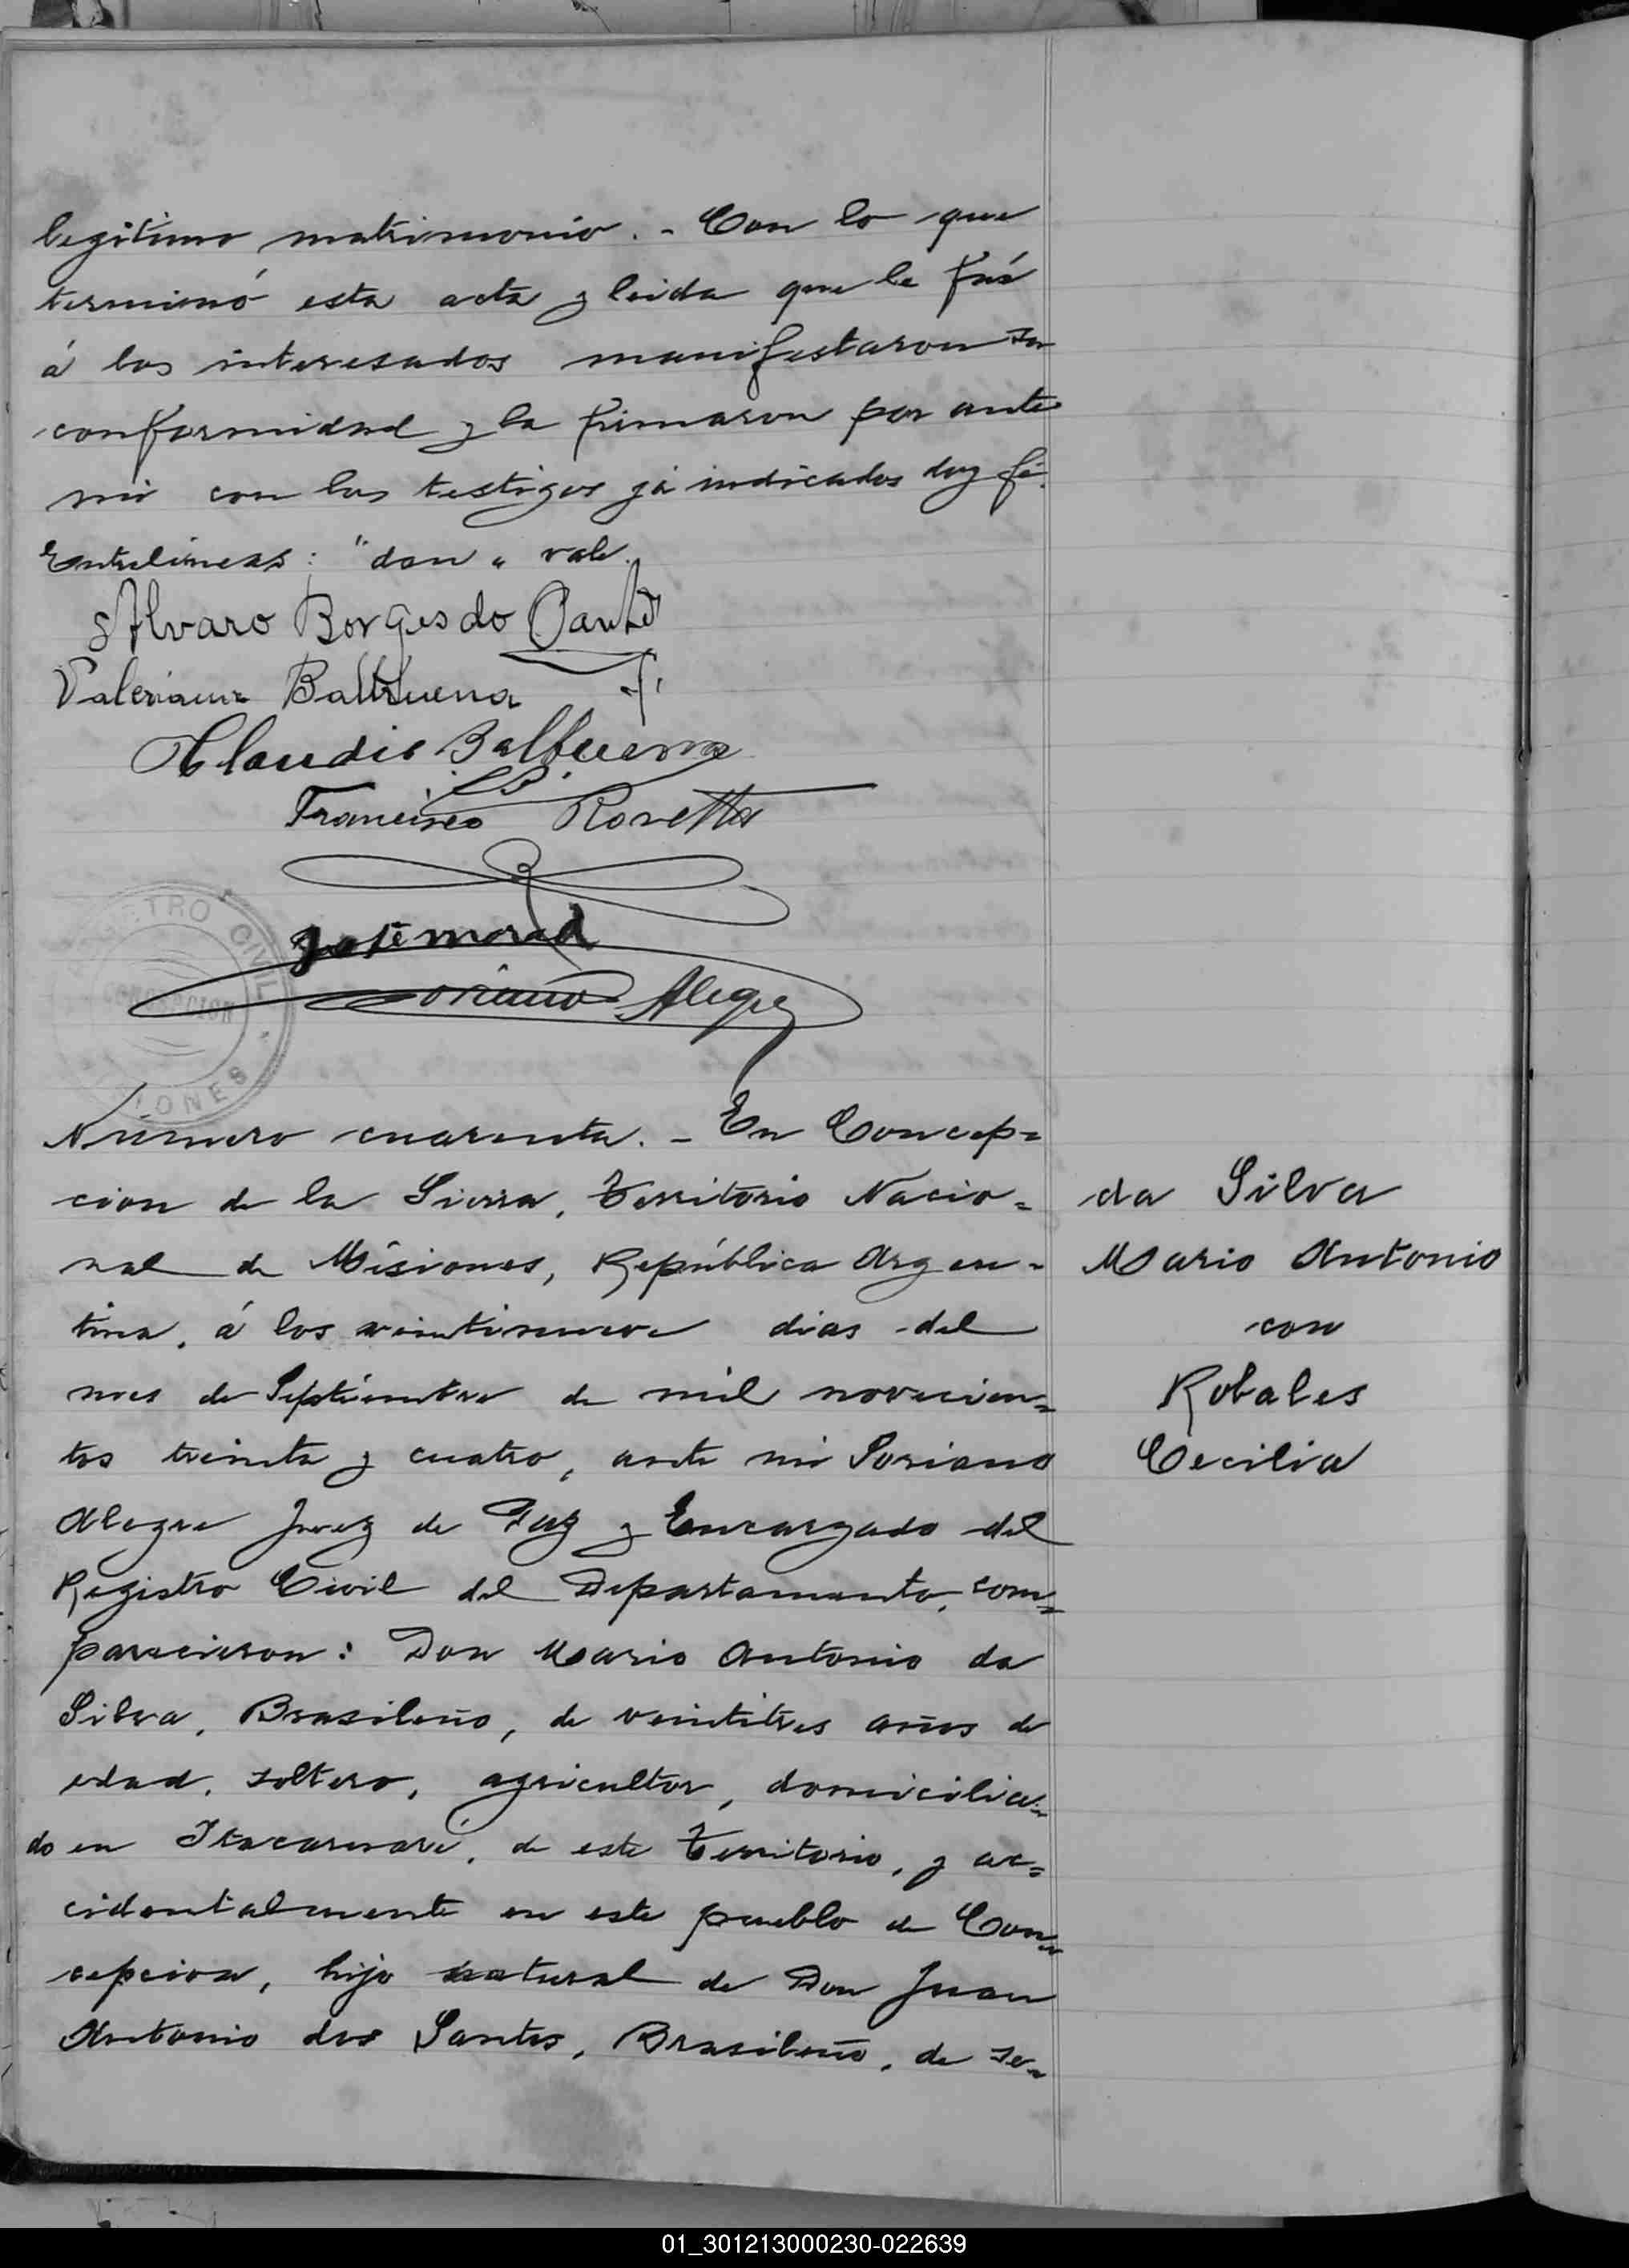 legitimo matrimonio. - Con lo que
terminó esta acta y leida que le fué
á los interesados manifestaron su
conformidad y la firmaron por ante
mi con los testigos já indicados doy fé.
Entrelineas: "don" vale.
Alvaro Borges do Canto
Valeriana Balbuena
Claudio Balbuena
Francisco Rovetta
José morad
Soriano Alegre
REGISTRO CIVIL
CONCEPCION
MISIONES
Número cuarenta. - En Concep=
cion de la Sierra, Territorio Nacio=
nal de Misiones, República Argen-
tina, á los veintinueve dias del
mes de Septiembre de mil novecien=
tos treinta y cuatro, ante mi Soriano
Alegre Juez de Paz y Encargado del
Registro Civil del Departamento, com=
parecieron: Don Mario Antonio da
Silva, Brasileño, de veintitres años de
edad, soltero, agricultor, domicilia=
do en Itacaruaré, de este Territorio, y ac=
cidentalmente en este pueblo de Con=
cepcion, hijo natural de Don Juan
Antonio dos Santos, Brasileño, de se=
da Silva
Mario Antonio
con
Robales
Cecilia
01_301213000230-022639